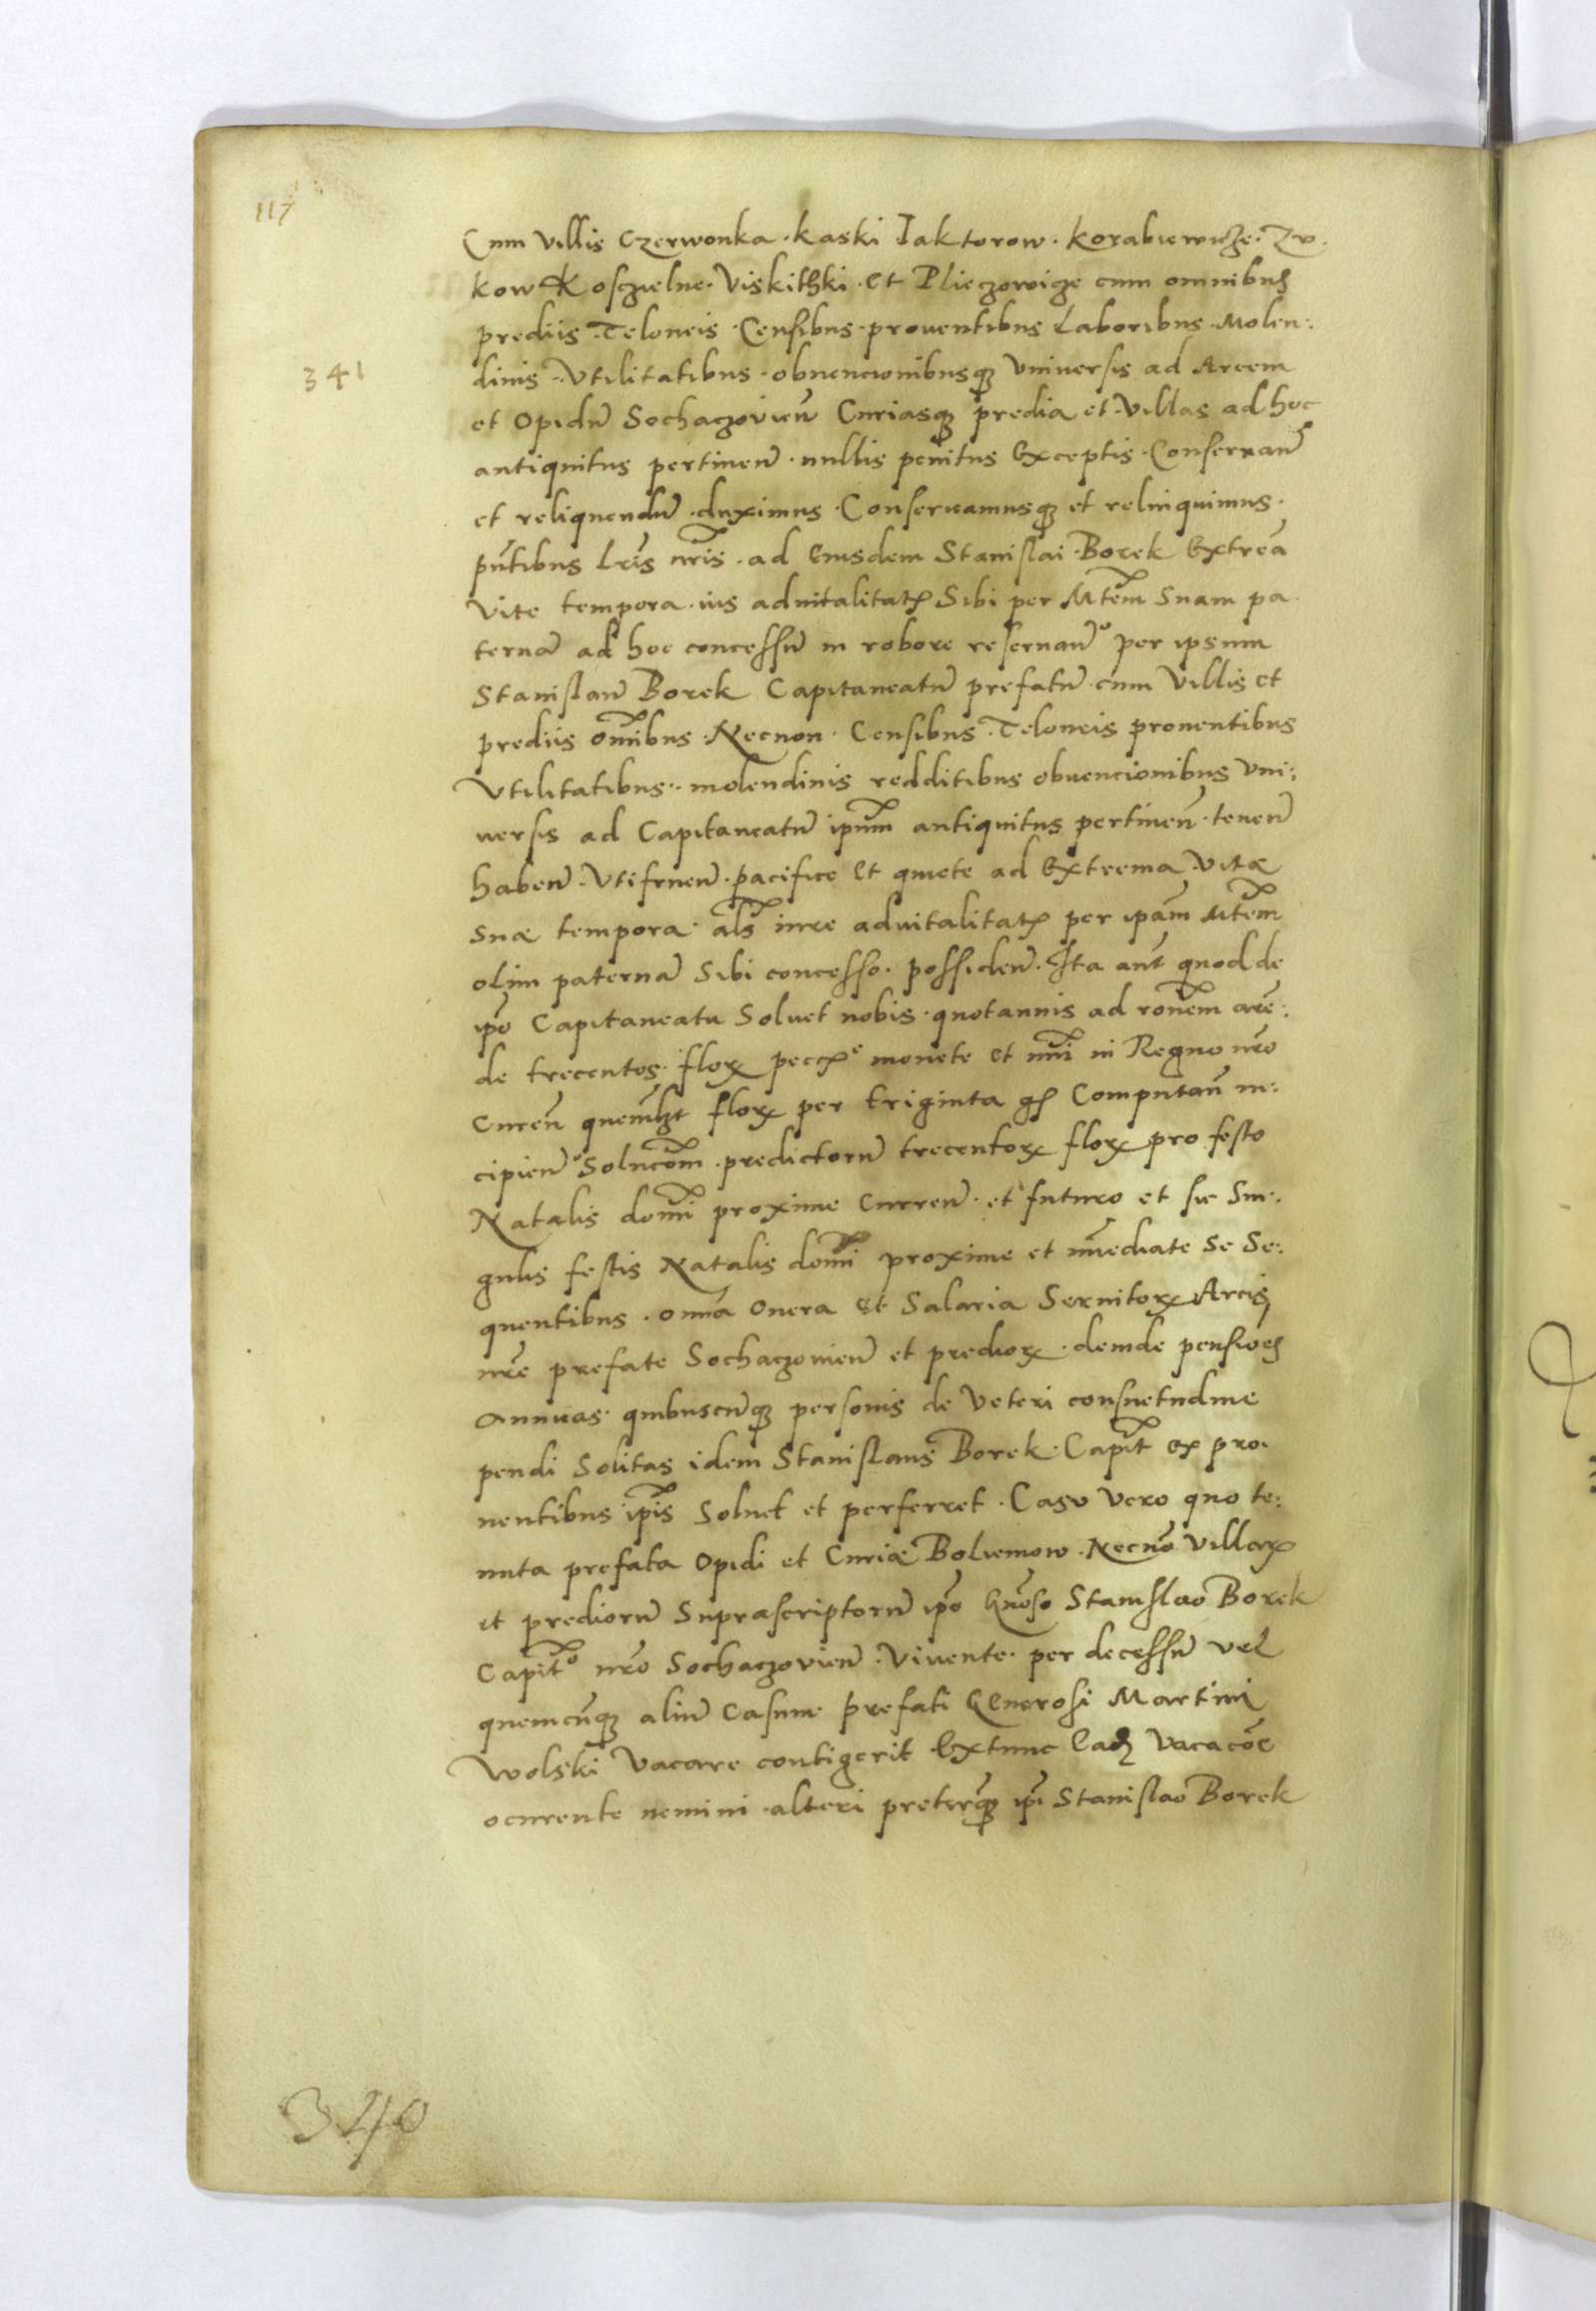 117
Cum Villis Czerwonka. Kaski Iaktorow. Korabiewicze. Zu.
kow Kosczielne. Viskithki. et Plieczowicze cum omnibus
prediis. Teloneis. Censibus. proventibus Laboribus. Molen:
341
dinis. Vtilitatibus. obvencionibusq Vniversis ad Arcem
et Opidũ Sochaczovien̄ Curiasq predia et Villas ad hoc
antiquitus pertinen̄. nullis penitus Exceptis. Conservan̄
et reliquendũ. duximus. Conservamusq et relinquimus.
pñtibus Lr̃is nr̃is. ad Eiusdem Stanislai Borek Extrea̅
Vite tempora. ius advitalitatꝭ Sibi per Mtẽm Suam pa
ternã ad hoc concessũ in robore reservan̄o per ipsum
Stanislaũ Borek Capitaneatũ prefatũ cum Villis et
prediis om̃ibus. Necnon. Censibus. Teloneis proventibus
Vtilitatibus. molendinis redditibus obvencionibus Vni:
versis ad Capitaneatũ ipm̃ antiquitus pertinen̄. tenen̄
haben̄. Vtifruen̄. pacifice et quiete ad Extrema Vitæ
Suæ tempora. al̃s iure advitalitatꝭ per ipãm Mtẽm
olim paternã Sibi concesso. possiden̄. Ita aut̃ quod de
ip̃o Capitaneatu Solvet nobis. quotannis ad rõnem are:
de trecentos. florꝭ peccꝭe monete et nũi in Regno nr̃o
Curen̄ quemlȝt florꝭ per triginta gꝭ Computan̄ in:
cipien̄o Solucõm. predictorũ trecentorꝭ florꝭ pro festo
Natalis domĩ proxime Curren̄. et futuro et sic Sin:
gulis festis Natalis domĩ proxime et im̃ediate Se Se:
quentibus. om̃ia Onera et Salaria Servitorꝭ Arcis
nr̃e prefate Sochaczovien̄ et prediorꝭ. deinde pensiões
Annuas. quibuscũq personis de Veteri consuetudine
pendi Solitas idem Stanislaus Borek. Capit̃ ex pro.
ventibus ip̃is Solvet et perferret. Casu Vero quo te:
nuta prefata Opidi et Curiæ Boliemow. Necnõ Villarꝭ
et prediorũ Suprascriptorũ ip̃o Gnõso Stanislao Borek
Capit̃o nr̃o Sochaczovien̄. Vivente. per decessũ vel
quemcũq aliũ Casum. prefati Generosi Martini
Wolski Vacare contigerit Extunc Eadȝ Vacacõe
ocurente nemini. alteri preterq̃ ip̃i Stanislao Borek
340